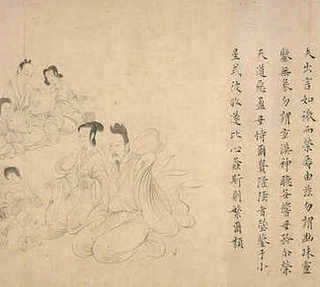 夫出言如微而榮辱由茲勿謂幽昧靈
鑒無象勿謂玄漠神聽無響毋矜尔榮
天道惡盈毋恃爾貴隆隆者墜鑒于小
星戒彼攸遂比心螽斯則繁爾類